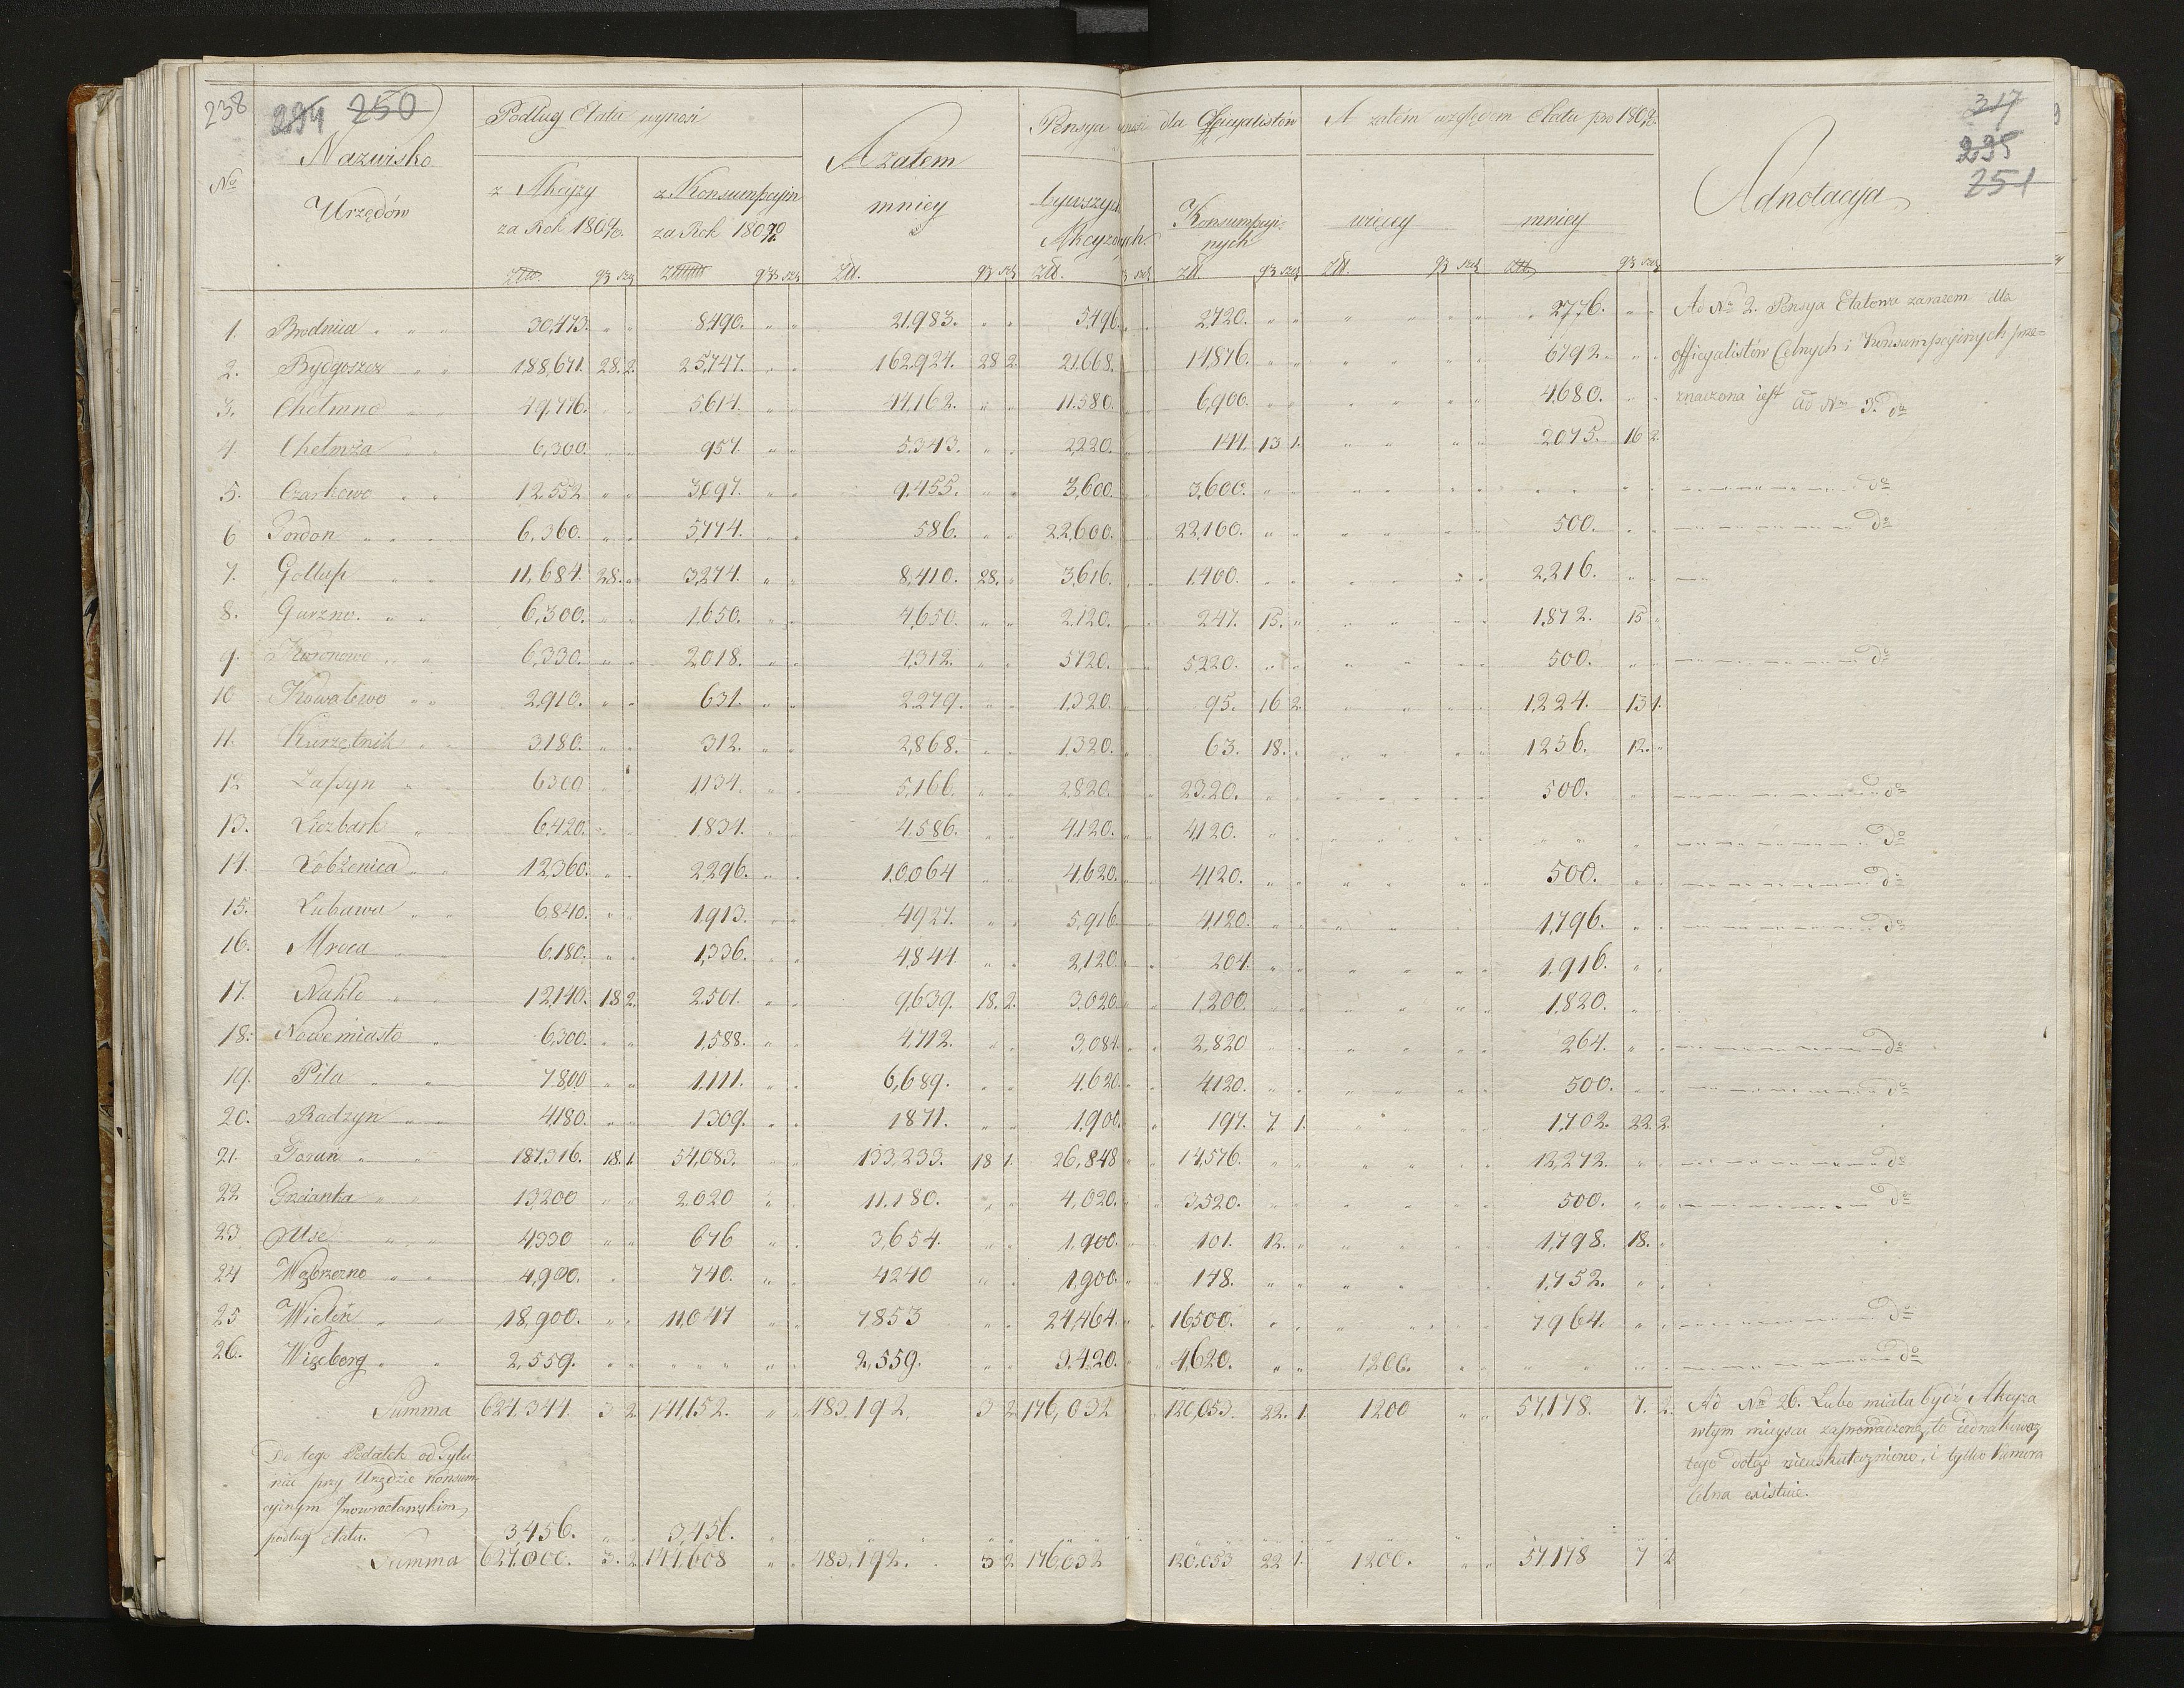 238 294 250 317
235
251
Podług Etatu wynosi Pensya wynosi dla Officyalistów A zatém względem Etatu pro 1809/10.
No Nazwisko Urzędów z Akcyzy za Rok 1809/10. z Konsumpcyin za Rok 1809/10 A zatem mniey bywszych Akcyznych Konsumpcyinych więcey mniey Adnotacyja
Złł. gr szl Złł. gr szl Złł. gr szl Złł. gr szl Złł. gr szl Złł. gr szl Złł. gr szl
1. Brodnica " " 30,473. " " 8,490. " " 21,983. " " 5,496. " " 2,720. " " " " " " 2,776. " " Ad No 2. Pensya Etatowa zarazem dla
2. Bydgoszcz " " 188,671. 28. 2. 25,747. " " 162,924. 28 2. 21,668. 14,876. " " " " " " 6,792. " " officyalistów Celnych i Konsumpcyinych prze=
3. Chełmno " " 49,776. " " 5,614. " " 44,162. " " 11,580. 6,900. " " " " " " 4,680. " " znaczona iest ad No 3. do
4. Chełmża " " 6,300. " " 957. " " 5,343. " " 2,220. 144. 13 1. " " " " 2075. 16 2.
5. Czarkowo " " 12,552. " " 3,097. " " 9,455. " " 3,600. 3,600. " " " " " " " " " do
6 Fordon " " 6,360. " " 5,774. " " 586. " " 22,600. 22,100. " " " " " " 500. " " do
7. Gollup " " 11,684. 28. " 3,274. " " 8,410. 28. " 3,616. 1,400. " " " " " " 2,216. " "
8. Gurzno. " " 6,300. " " 1,650. " " 4,650. " " 2,120. 247. 15. " " " " " 1,872. 15 "
9. Koronowo " " 6,330. " " 2,018. " " 4,312. " " 5,720. 5,220. " " " " " " 500. " " do
10 Kowalewo " " 2,910. " " 631. " " 2,279. " " 1,320. 95. 16 2. " " " " 1,224. 13 1.
11. Kurzętnik " " 3,180. " " 312. " " 2,868. " " 1,320. 63. 18. " " " " " 1256. 12. "
12 Łassyn " " 6300 " " 1,134. " " 5,166. " " 2,820. 2320. " " " " " " 500. " " do
13. Liczbark " " 6,420. " " 1,834. " " 4,586. " " 4,120. 4,120. " " " " " " " " " do
14. Łobżenica " " 12,360. " " 2,296. " " 10,064 " " 4,620. 4,120. " " " " " " 500. " " do
15. Lubawa " " 6,840. " " 1,913. " " 4,927. " " 5,916. 4,120. " " " " " " 1,796. " " do
16. Mroca " " 6,180. " " 1,336. " " 4,844. " " 2,120. 204. " " " " " " 1,916. " "
17. Nakło " " 12,140. 18 2. 2,501. " " 9,639. 18. 2. 3,020. 1,200. " " " " " " 1,820. " "
18. Nowemiasto " 6,300. " " 1,588. " " 4,712. " " 3,084. 2,820 " " " " " " 264. " " do
19. Piła " " 7,800 " " 1,111. " " 6,689. " " 4,620. 4,120. " " " " " " 500. " " do
20. Radzyn " " 4,180. " " 1309. " " 1871. " " 1,900. 197. 7. 1. " " " " 1,702. 22. 2.
21. Toruń " " 187,316. 18. 1. 54,083. " " 133,233. 18 1. 26,848 14,576. " " " " " " 12,272. " " do
22 Trzcianka " " 13,200 " " 2,020 " " 11,180. " " 4,020. 3,520. " " " " " " 500. " " do
23 Uść " " 4330 " " 676 " " 3,654. " " 1,900. 101. 12. " " " " " 1,798. 18. "
24 Wąbrzezno " " 4,980. " " 740. " " 4240 " " 1,900. 148. " " " " " " 1,752. " "
25 Wieleń " " 18,900. " " 11,047 " " 7853 " " 24,464. 16500. " " " " " " 7,964. " " do
26. Wizeborg " " 2,559. " " " " " 2,559. " " 3,420. 4,620. " " 1200. " " " " " do
Summa 624,344. 3 2. 141,152. " " 483,192. 3 2. 176,032 120,053. 22. 1. 1200 " " 57,178. 7. 2. Ad No 26. Lubo miała bydź Akcyza
Do tego Podatek od Tytu= wtym mieyscu zaprowadzona, to iednakowoż
niu przy Urzędzie Konsum= tego dotąd nieuskuteczniono, i tylko Komora
cyinym Jnowrocławskim, Celna existuie.
podług Etatu. 3,456. " " 3,456. " "
Summa 627,800. 3. 2. 144,608 " " 483,192. 3 2 176,032 120,053 22 1. 1200. " " 57,178 7 2